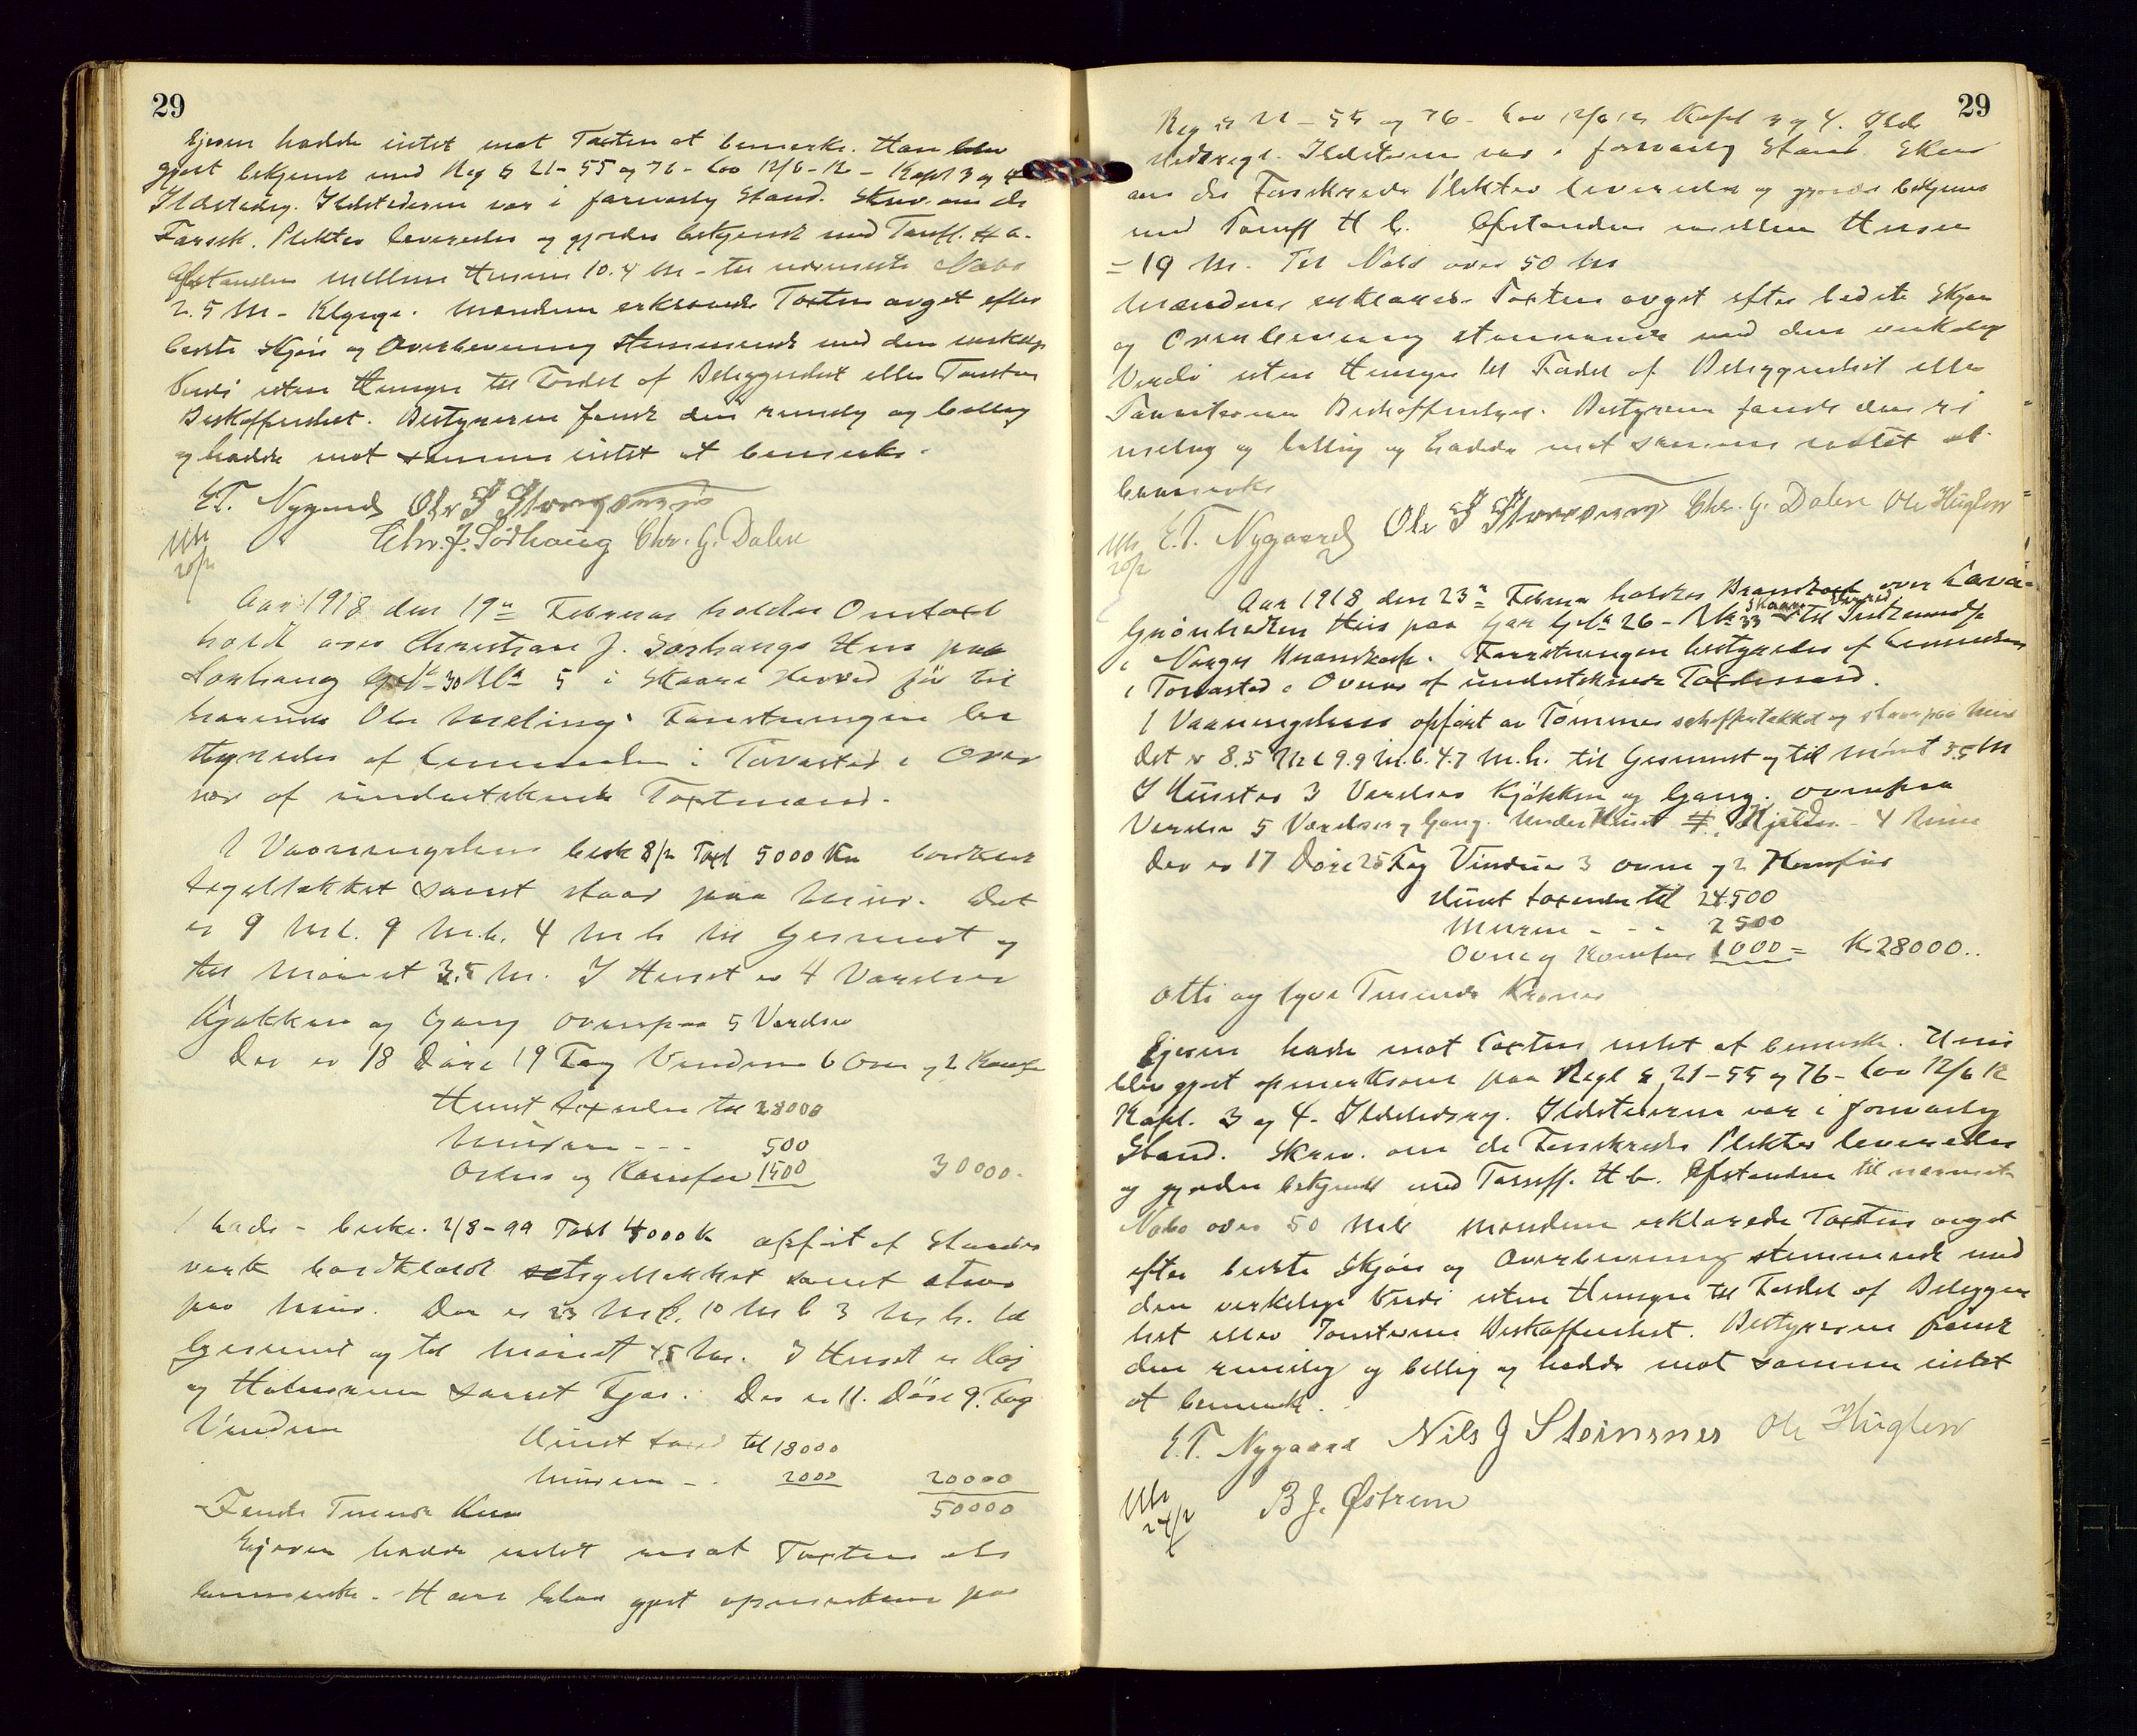 29
Ejeren hadde intet mot Taxten at bemerke. Han blev
gjort bekjent med Reg § 21-55 og 76- Lov 12/6-12- Kapl 3 og 4
Ildstedreg. Ildstederne var i forsvarlig Stand. Skriv. om de
Forssk. Plekter leveredes og gjordes bekjendt med Tariff. H b.
Afstanden mellem Husene 10.4 M - til nærmeste Nabo
2.5 M - Klynge. Mændene erklærede Taxten avgit efter
bedste Skjøn og Overbevisning stemmende med den virkelige
Verdi uten Hensyn til Fordel af Beliggenhet eller Tomtens
Beskaffenhet. Bestyreren fandt den rimelig og billig
og hadde mot samme intet at bemerke.
E.T. Nygaard Ole S Storesund
Chr. J. Sørhaug Chr. G. Dalen
20/2
Aar 1918 den 19de Februar holdtes Omtaxt
holdt over Christian J. Sørhaugs Hus paa
Sørhaug Gn 30 Bn 5 i Skaare Herred før til
hørende Ole Meling. Forretningen be
styredes af Lensmanden i Torvastad i Over
vær af underteknede Taxtmænd.
1 Vaaningshus besk 8/2 Taxt 5000 Kr bordkledt
tegeltækket samt staar paa Mur. Det
er 9 M l. 9 M.b. 4 M h til Gesimset og
til Mønet 3.5 M. I Huset er 4 Værelser
Kjøkken og Gang ovenpaa 5 Værelser
Der er 18 Døre 19 Fag Vinduer 6 Ovne og 2 Komfur
Huset taxeres til 28000
Muren - - - 500
Ovne og Komfur 1500 30000.
1 Lade - beske. 2/8-99 Taxt 4000 K opført af Stander
verk bordklædt tegeltækket samt staar
paa Mur. Der er 23 M l. 10 M b 3 M h. til
Gesimset og til Mønet 4.5 M. I Huset er Høi
og Halmrum samt Fjøs. Der er 11. Døre 9. Fag
Vinduer
Huset taxed til 18000
Muren - . 2000 20000
50000
Femti Tusende Kroner
Ejeren hadde intet mot Taxten at
bemerke. Han blev gjort opmerksom paa
29
Reg § 21 - 55 og 76 - Lov 12/6 12 Kapl 3 og 4. Ild
stedregl. Ildstederne var i forsvarlig Stand. Skriv
om de Forskrevne Plekter leveredes og gjordes bekjent
med Tariff H b. Afstanden mellem Husene
= 19 M. Til Nabo over 50 M
Mændene erklærede Taxten avgit efter bedste Skjøn
og Overbevisning stemmende med den virkelige
Verdi uten Hensyn til Fordel af Beliggenhet eller
Tomternes Beskaffenhet. Bestyreren fandt den ri
melig og billig og hadde mot samme intet at
bemerke
E.T. Nygaard Ole S Storesund Chr. G. Dalen Ole Huglen
20/2
Aar 1918 den 23de Februar holdtes Brandtaxt over Lava
Grønhedens Hus paa Gaa Gn 26 - Bn 33 Skaare Herred Til Indtegnelse
i Norges Brandkasse. Forretningen bestyredes af Lensmanden
i Torvastad i Overvær af undertegnede Taxtmænd.
1 Vaaningshus opført av Tømmer skiffertækket og staar paa Mur
Det er 8.5 M l 9.9 M.b. 4.7 M.h. til Gesimset og til Mønet 3.5 M
I Huset er 3 Værelser Kjøkken og Gang. ovenpaa
Værelser 5 Værelser og Gang. Under Huset Kjelder - 4 Rum
Der er 17 Døre 25 Fag Vinduer 3 ovne og 2 Komfur
Huset taxeres til 24500
Muren - - - 2500
Ovne og Komfur 1000 = K 28000..
Otte og tyve Tusende Kroner
Ejeren hadde mot Taxten intet at bemerke. Hun
blev gjort opmerksom paa Regl § 21-55 og 76- Lov 12/6 12
Kapl. 3 og 4. Ildstedsreg. Ildstederne var i forsvarlig
Stand. Skriv. om de Forskrevne Plekter leveredes
og gjordes bekjendt med Tariff. H b. Afstanden til nærmeste
Nabo over 50 Mtr Mændene erklærede Taxten avgit
efter bedste Skjøn og Overbevisning stemmende med
den virkelige Verdi uten Hensyn til Fordel af Beliggen
het eller Tomternes Beskaffenhet. Bestyreren fandt
den rimelig og billig og hadde mot samme intet
at bemerke.
E.T. Nygaard Nils J Steinsnes Ole Huglen
24/2
B J. Østrem